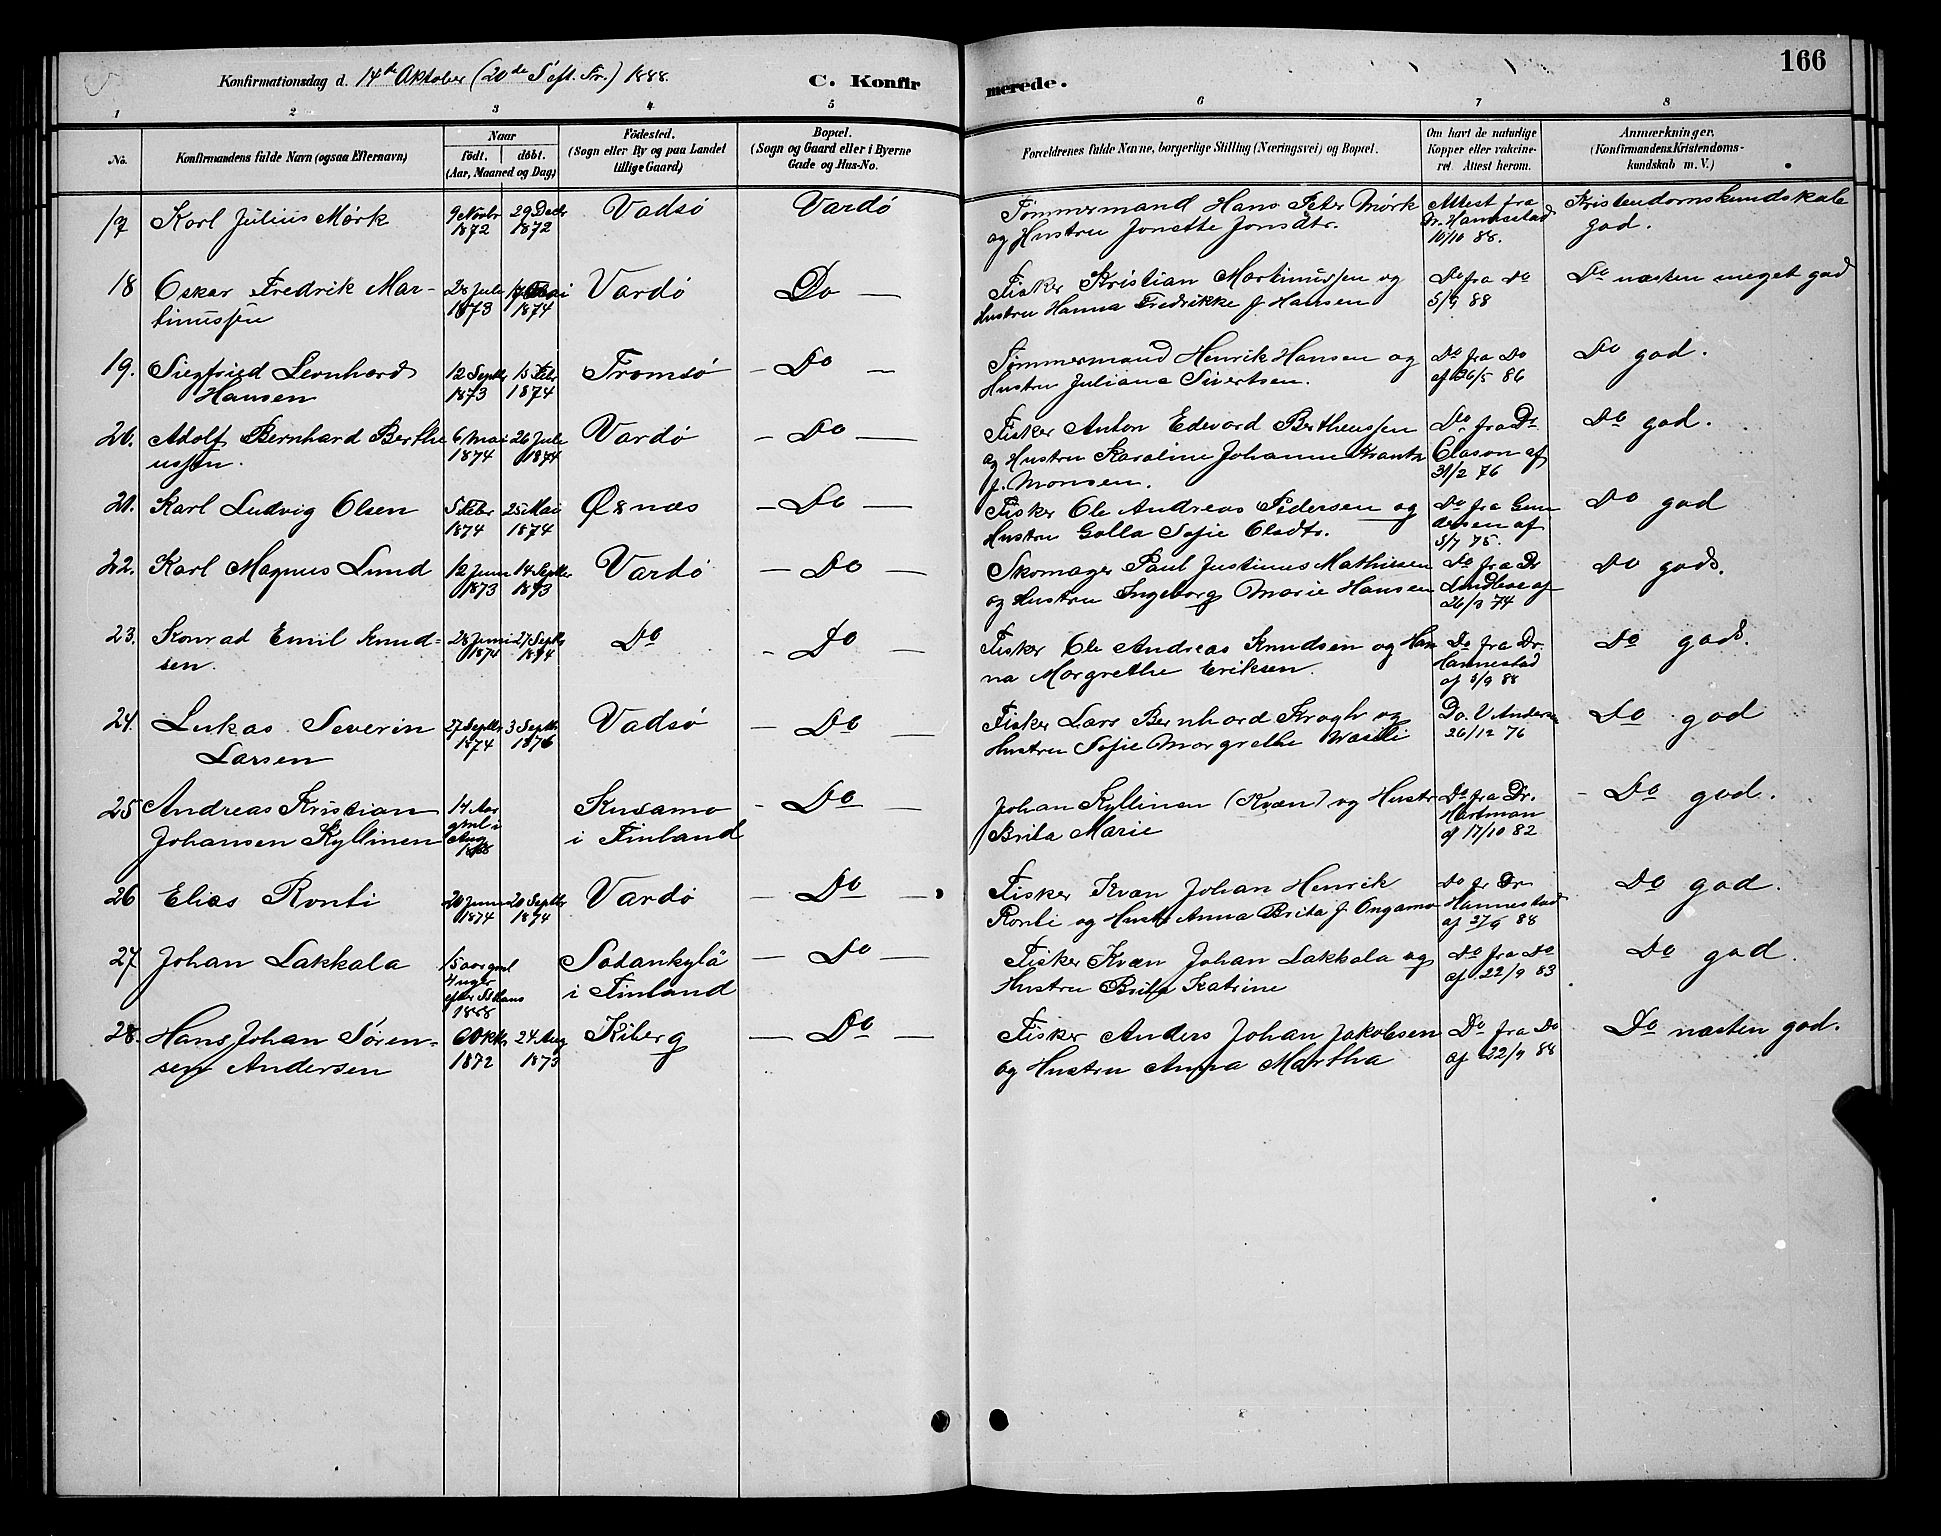 166
Konfirmationsdag d. 14de Oktober (20de S. eft. Tr.) 1888.
C. Konfirmerede.
1 2 3 4 5 6 7 8
No.
Konfirmandens fulde Navn (ogsaa Efternavn)
Naar
födt. döbt.
(Aar, Maaned og Dag)
Födested.
(Sogn eller By og paa Landet
tillige Gaard)
Bopæl.
(Sogn og Gaard eller i Byerne
Gade og Hus-No.
Forældrenes fulde Navne, borgerlige Stilling (Næringsvei) og Bopæl.
Om havt de naturlige
Kopper eller vakcine-
ret. Attest herom.
Anmærkninger.
(Konfirmandens Kristendoms-
kundskab m. V.)
17 Karl Julius Mörk
9 Novbr 1872
29 Decbr 1872
Vadsö
Vardö
Tømmermand Hans Peter Mörk
og Hustru Jonette Jonsdtr.
Attest fra
Dr. Hannestad
10/10 88.
Kristendomskundskab
god.
18 Oskar Fredrik Mar-
tinussen
28 Juli 1873
Mai 1874
Vardö
Do
Fisker Kristian Martinussen og
Hustru Hanna Fredrikke f. Hansen
Do fra Do
5/9 88
Do næsten meget god
19. Siegfried Leonhard
Hansen
12 Septbr 1873
15 Febr 1874
Tromsö
Do
Tømmermand Henrik Hansen og
Hustru Juliana Sivertsen.
Do fra Do
af 26/5 86
Do god.
20. Adolf Bernhard Berthe
ussen.
6 Mai 1874
26 Juli 1874
Vardö
Do
Fisker Anton Edevard Bertheussen
og Hustru Karoline Johanne Krantz
f. Monsen.
Do fra Dr
Clason af
31/2 76
Do god.
21. Karl Ludvig Olsen
5 Febr 1874
25 Mai 1874
Øxnæs
Do
Fisker Ole Andreas Pedersen og
Hustru Golla Sofie Olsdtr.
Do fra Gun
dersen af
5/7 75.
Do god
22. Karl Magnus Lund
12 Juni 1873
14 Septbr 1873
Vardö
Do
Skomager Paul Justinus Mathiesen
og Hustru Ingeborg Marie Hansen
Do fra Dr
Lindboe af
26/3 74
Do god.
23. Konrad Emil Knud-
sen.
28 Juni 1874
27 Septbr 1874
Do
Do
Fisker Ole Andreas Knudsen og Han
na Margrethe Eriksen.
Do fra Dr.
Hannestad
af 5/9 88
Do god.
24. Lukas Severin
Larsen
27 Septbr 1874
3 Septbr 1876
Vadsö
Do
Fisker Lars Bernhard Krogh og
Hustru Sofie Margrethe Wasili
Do. V Anders
26/12 76
Do god
25 Andreas Kristian
Johansen Kyllinen
14 Aar
gml i
Aug
1888
Kusamo
i Finland
Do
Johan Kyllinen (Kvæn) og Hustr
Brita Marie
Do fra Dr.
Hartman
af 17/10 82
Do god.
26 Elias Ronti
20 Juni 1874
20 Septbr 1874
Vardö
Do
Fisker Kvæn Johan Henrik
Ronti og Hust. Anna Brita f. Ongamo
Do fr Dr.
Hannestad
af 27/9 88
Do god.
27. Johan Lakkala
15 aar gml
4 uger
efter St Hans
1888
Sodankylä
i Finland
Do
Fisker Kvæn Johan Lakkala og
Hustru Brita Katrine
Do fra Do
af 22/9 83
Do god.
28. Hans Johan Sören-
sen Andersen
6 Oktbr 1872
24 Aug 1873
Kiberg
Do
Fisker Anders Johan Jakobsen
og Hustru Anna Martha
Do fra Do
af 22/9 88
Do næsten god.